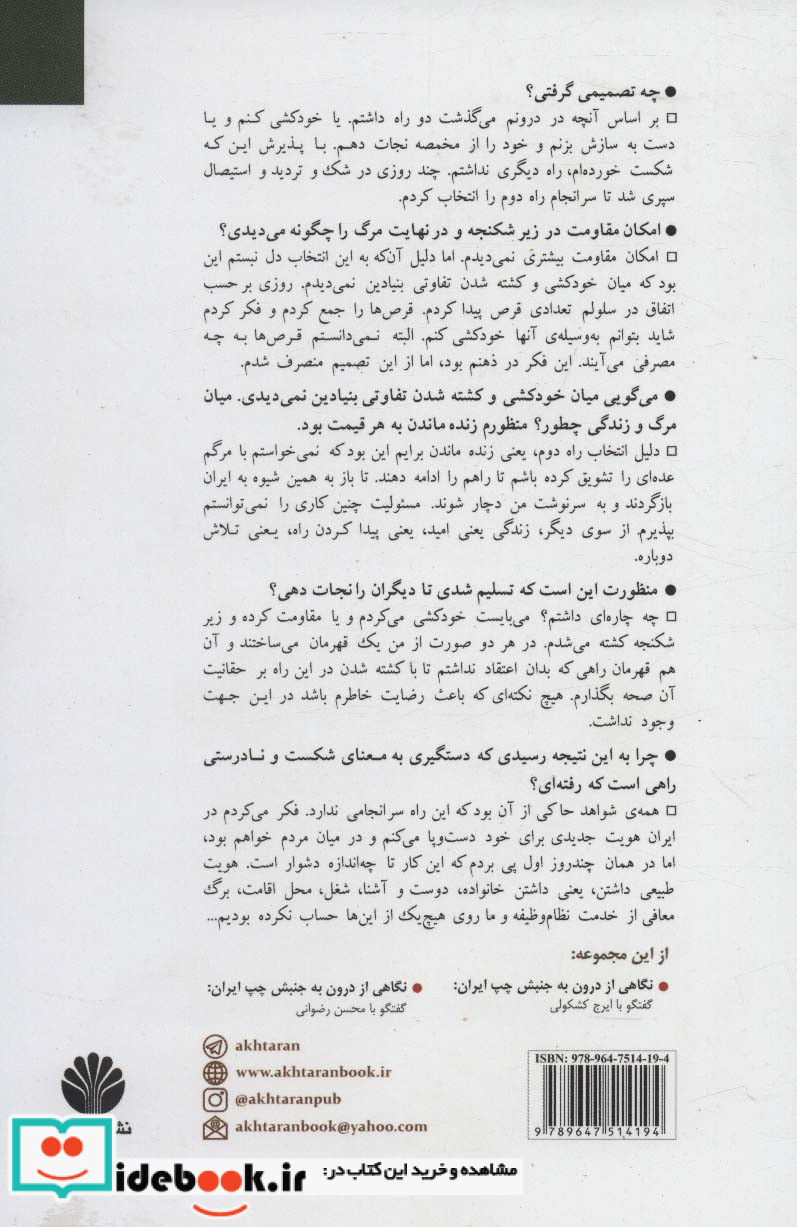 ● چه تصمیمی گرفتی؟
□ بر اساس آنچه در درونم می‌گذشت دو راه داشتم. یا خودکشی کنم و یا
دست به سازش بزنم و خود را از مخمصه نجات دهم. با پذیرش این که
شکست خورده‌ام، راه دیگری نداشتم. چند روزی در شک و تردید و استیصال
سپری شد تا سرانجام راه دوم را انتخاب کردم.
● امکان مقاومت در زیر شکنجه و در نهایت مرگ را چگونه می‌دیدی؟
□ امکان مقاومت بیشتری نمی‌دیدم. اما دلیل آن‌که به این انتخاب دل نبستم این
بود که میان خودکشی و کشته شدن تفاوتی بنیادین نمی‌دیدم. روزی بر حسب
اتفاق در سلولم تعدادی قرص پیدا کردم. قرص‌ها را جمع کردم و فکر کردم
شاید بتوانم به‌وسیله‌ی آنها خودکشی کنم. البته نمی‌دانستم قرص‌ها به چه
مصرفی می‌آیند. این فکر در ذهنم بود، اما از این تصمیم منصرف شدم.
● می‌گویی میان خودکشی و کشته شدن تفاوتی بنیادین نمی‌دیدی. میان
مرگ و زندگی چطور؟ منظورم زنده ماندن به هر قیمت بود.
□ دلیل انتخاب راه دوم، یعنی زنده ماندن برایم این بود که نمی‌خواستم با مرگم
عده‌ای را تشویق کرده باشم تا راهم را ادامه دهند. تا باز به همین شیوه به ایران
بازگردند و به سرنوشت من دچار شوند. مسئولیت چنین کاری را نمی‌توانستم
بپذیرم. از سوی دیگر، زندگی یعنی امید، یعنی پیدا کردن راه، یعنی تلاش
دوباره.
● منظورت این است که تسلیم شدی تا دیگران را نجات دهی؟
□ چه چاره‌ای داشتم؟ می‌بایست خودکشی می‌کردم و یا مقاومت کرده و زیر
شکنجه کشته می‌شدم. در هر دو صورت از من یک قهرمان می‌ساختند و آن
هم قهرمان راهی که بدان اعتقاد نداشتم تا با کشته شدن در این راه بر حقانیت
آن صحه بگذارم. هیچ نکته‌ای که باعث رضایت خاطرم باشد در این جهت
وجود نداشت.
● چرا به این نتیجه رسیدی که دستگیری به معنای شکست و نادرستی
راهی است که رفته‌ای؟
□ همه‌ی شواهد حاکی از آن بود که این راه سرانجامی ندارد. فکر می‌کردم در
ایران هویت جدیدی برای خود دست‌وپا می‌کنم و در میان مردم خواهم بود،
اما در همان چندروز اول پی بردم که این کار تا چه‌اندازه دشوار است. هویت
طبیعی داشتن، یعنی داشتن خانواده، دوست و آشنا، شغل، محل اقامت، برگ
معافی از خدمت نظام‌وظیفه و ما روی هیچ‌یک از این‌ها حساب نکرده بودیم...
از این مجموعه:
● نگاهی از درون به جنبش چپ ایران:
گفتگو با ایرج کشکولی
● نگاهی از درون به جنبش چپ ایران:
گفتگو با محسن رضوانی
akhtaran
www.akhtaranbook.ir
@akhtaranpub
akhtaranbook@yahoo.com
ISBN: 978-964-7514-19-4
9 789647 514194
مشاهده و خرید این کتاب در:
idebook.ir